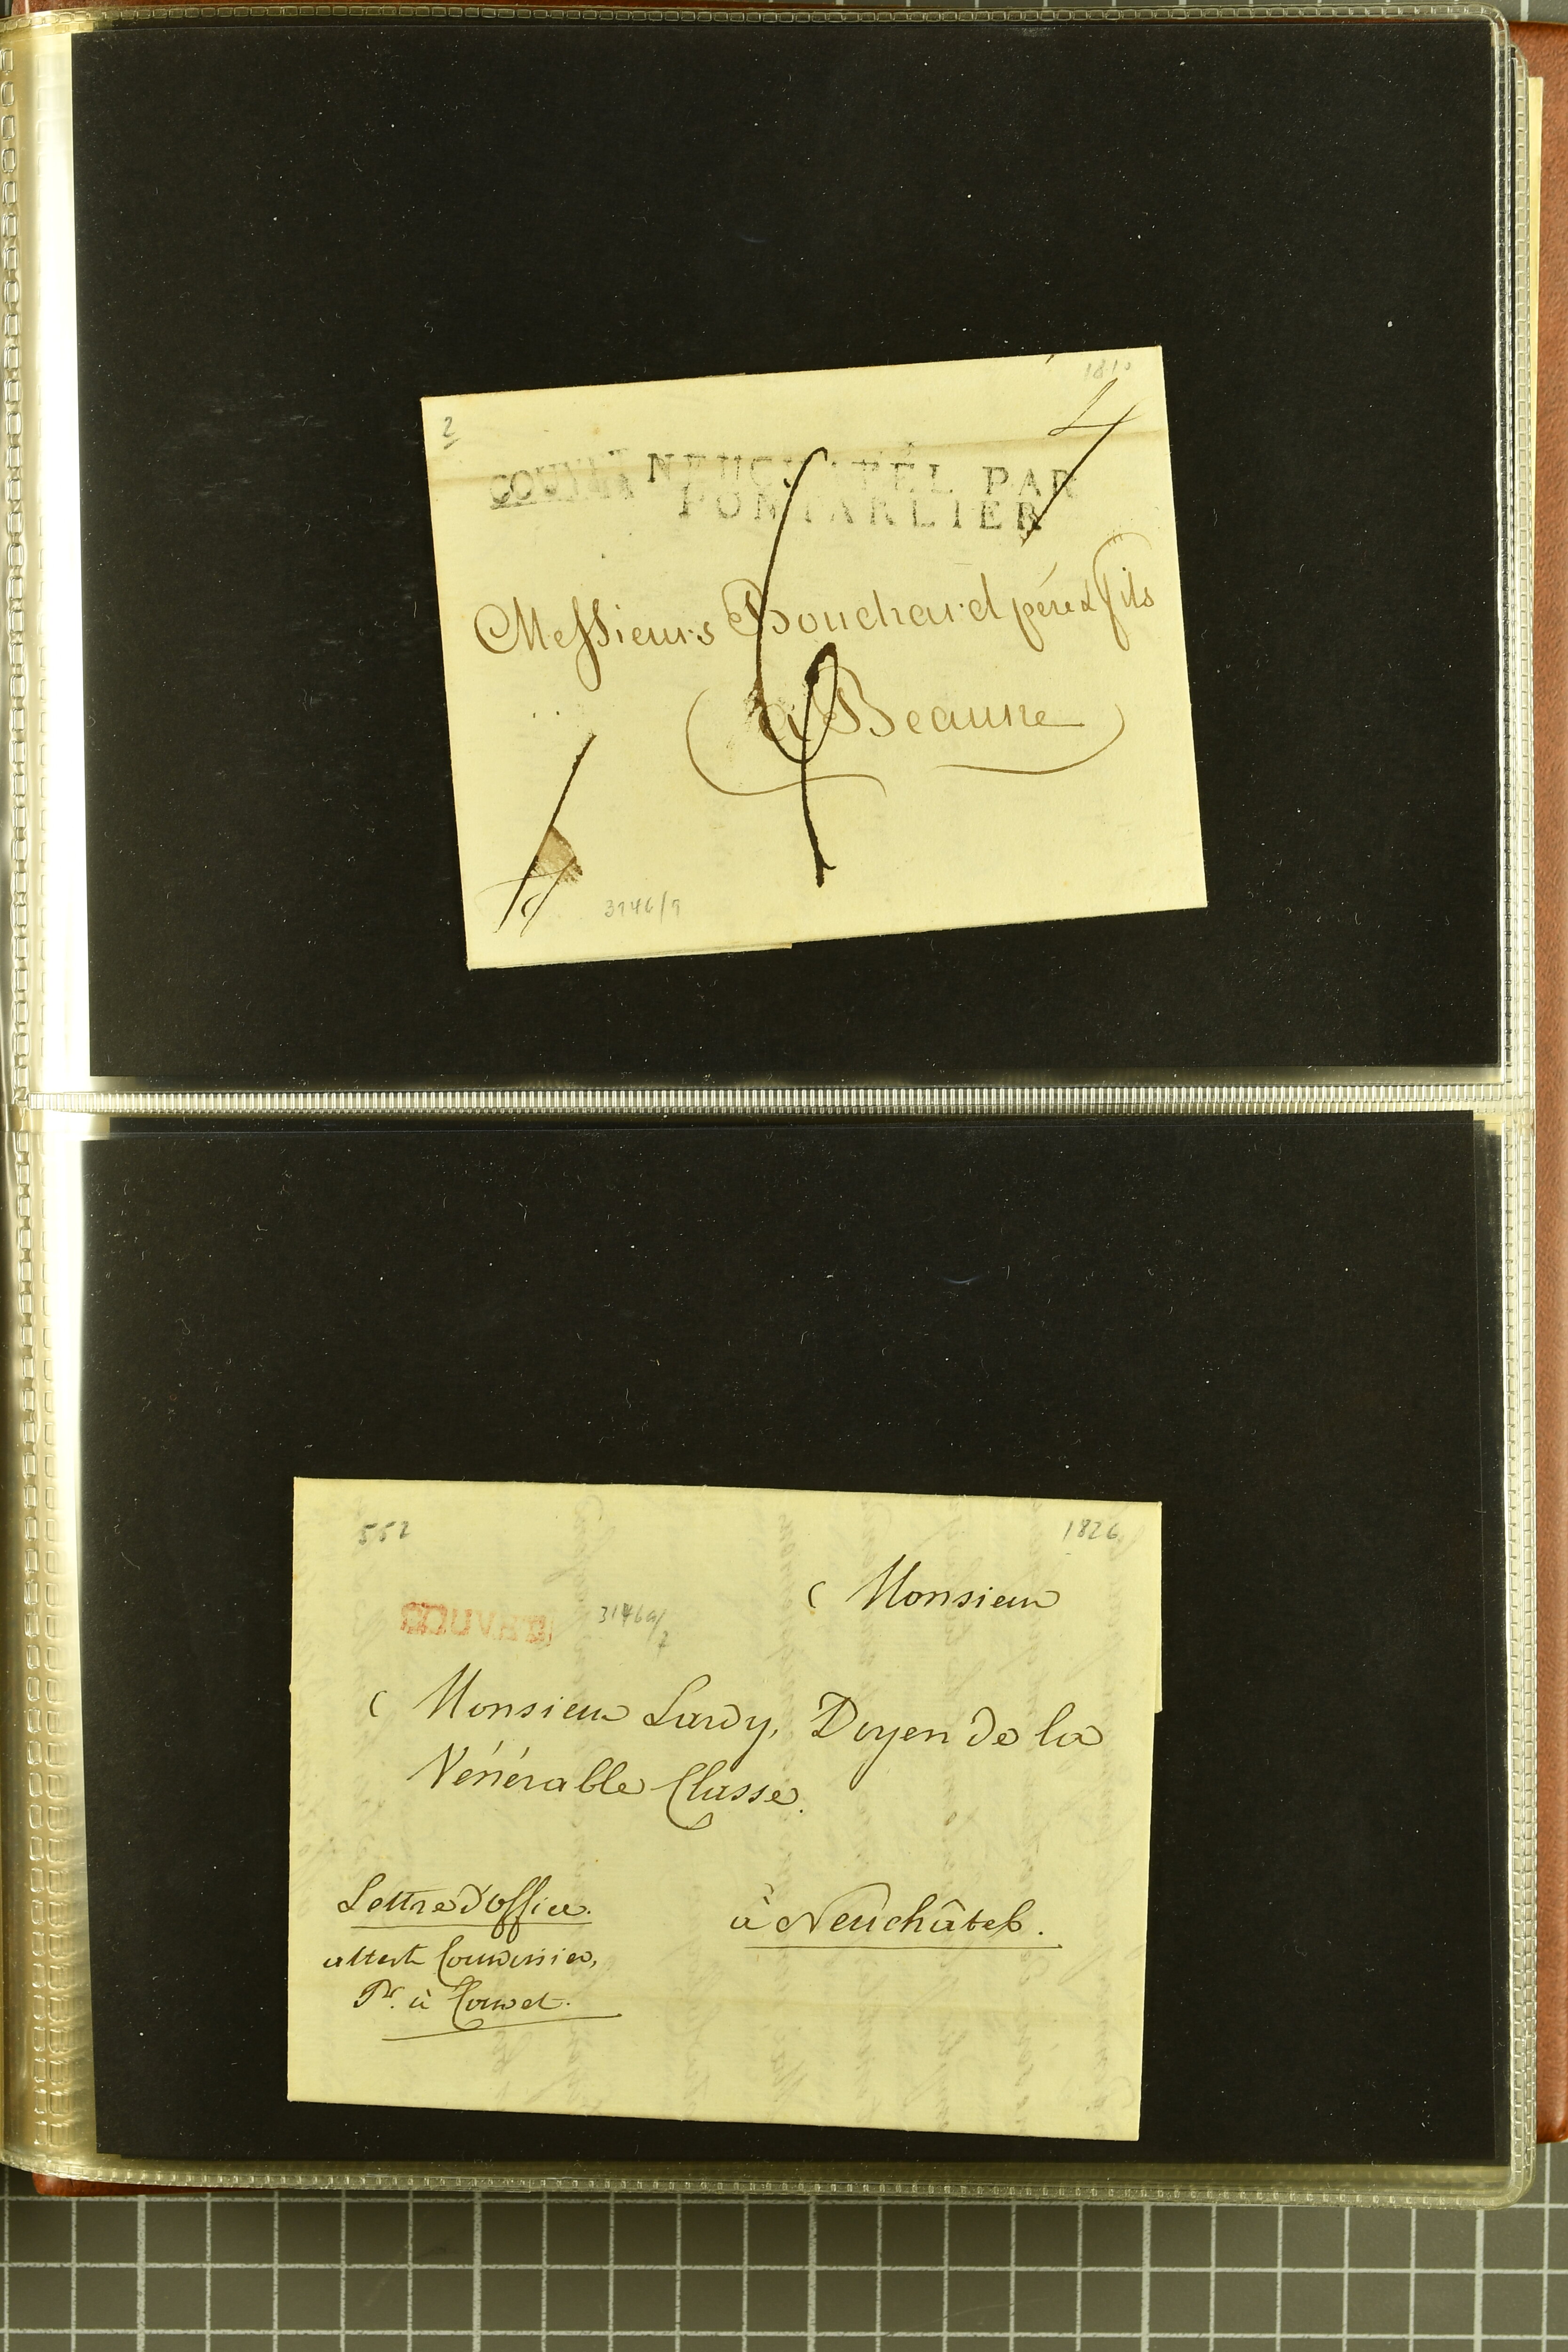 1810
2
4
COUVET NEUCHATEL PAR
PONTARLIER
Messieurs Bouchard père & fils
à Beaune
3146/9
552
1826
Monsieur
3146a/7
Monsieur Lardy, Doyen de la
Vénérable Classe.
Lettre d'Office.
à Neuchâtel.
atteste Courvoisier,
Pr. à Couvet.